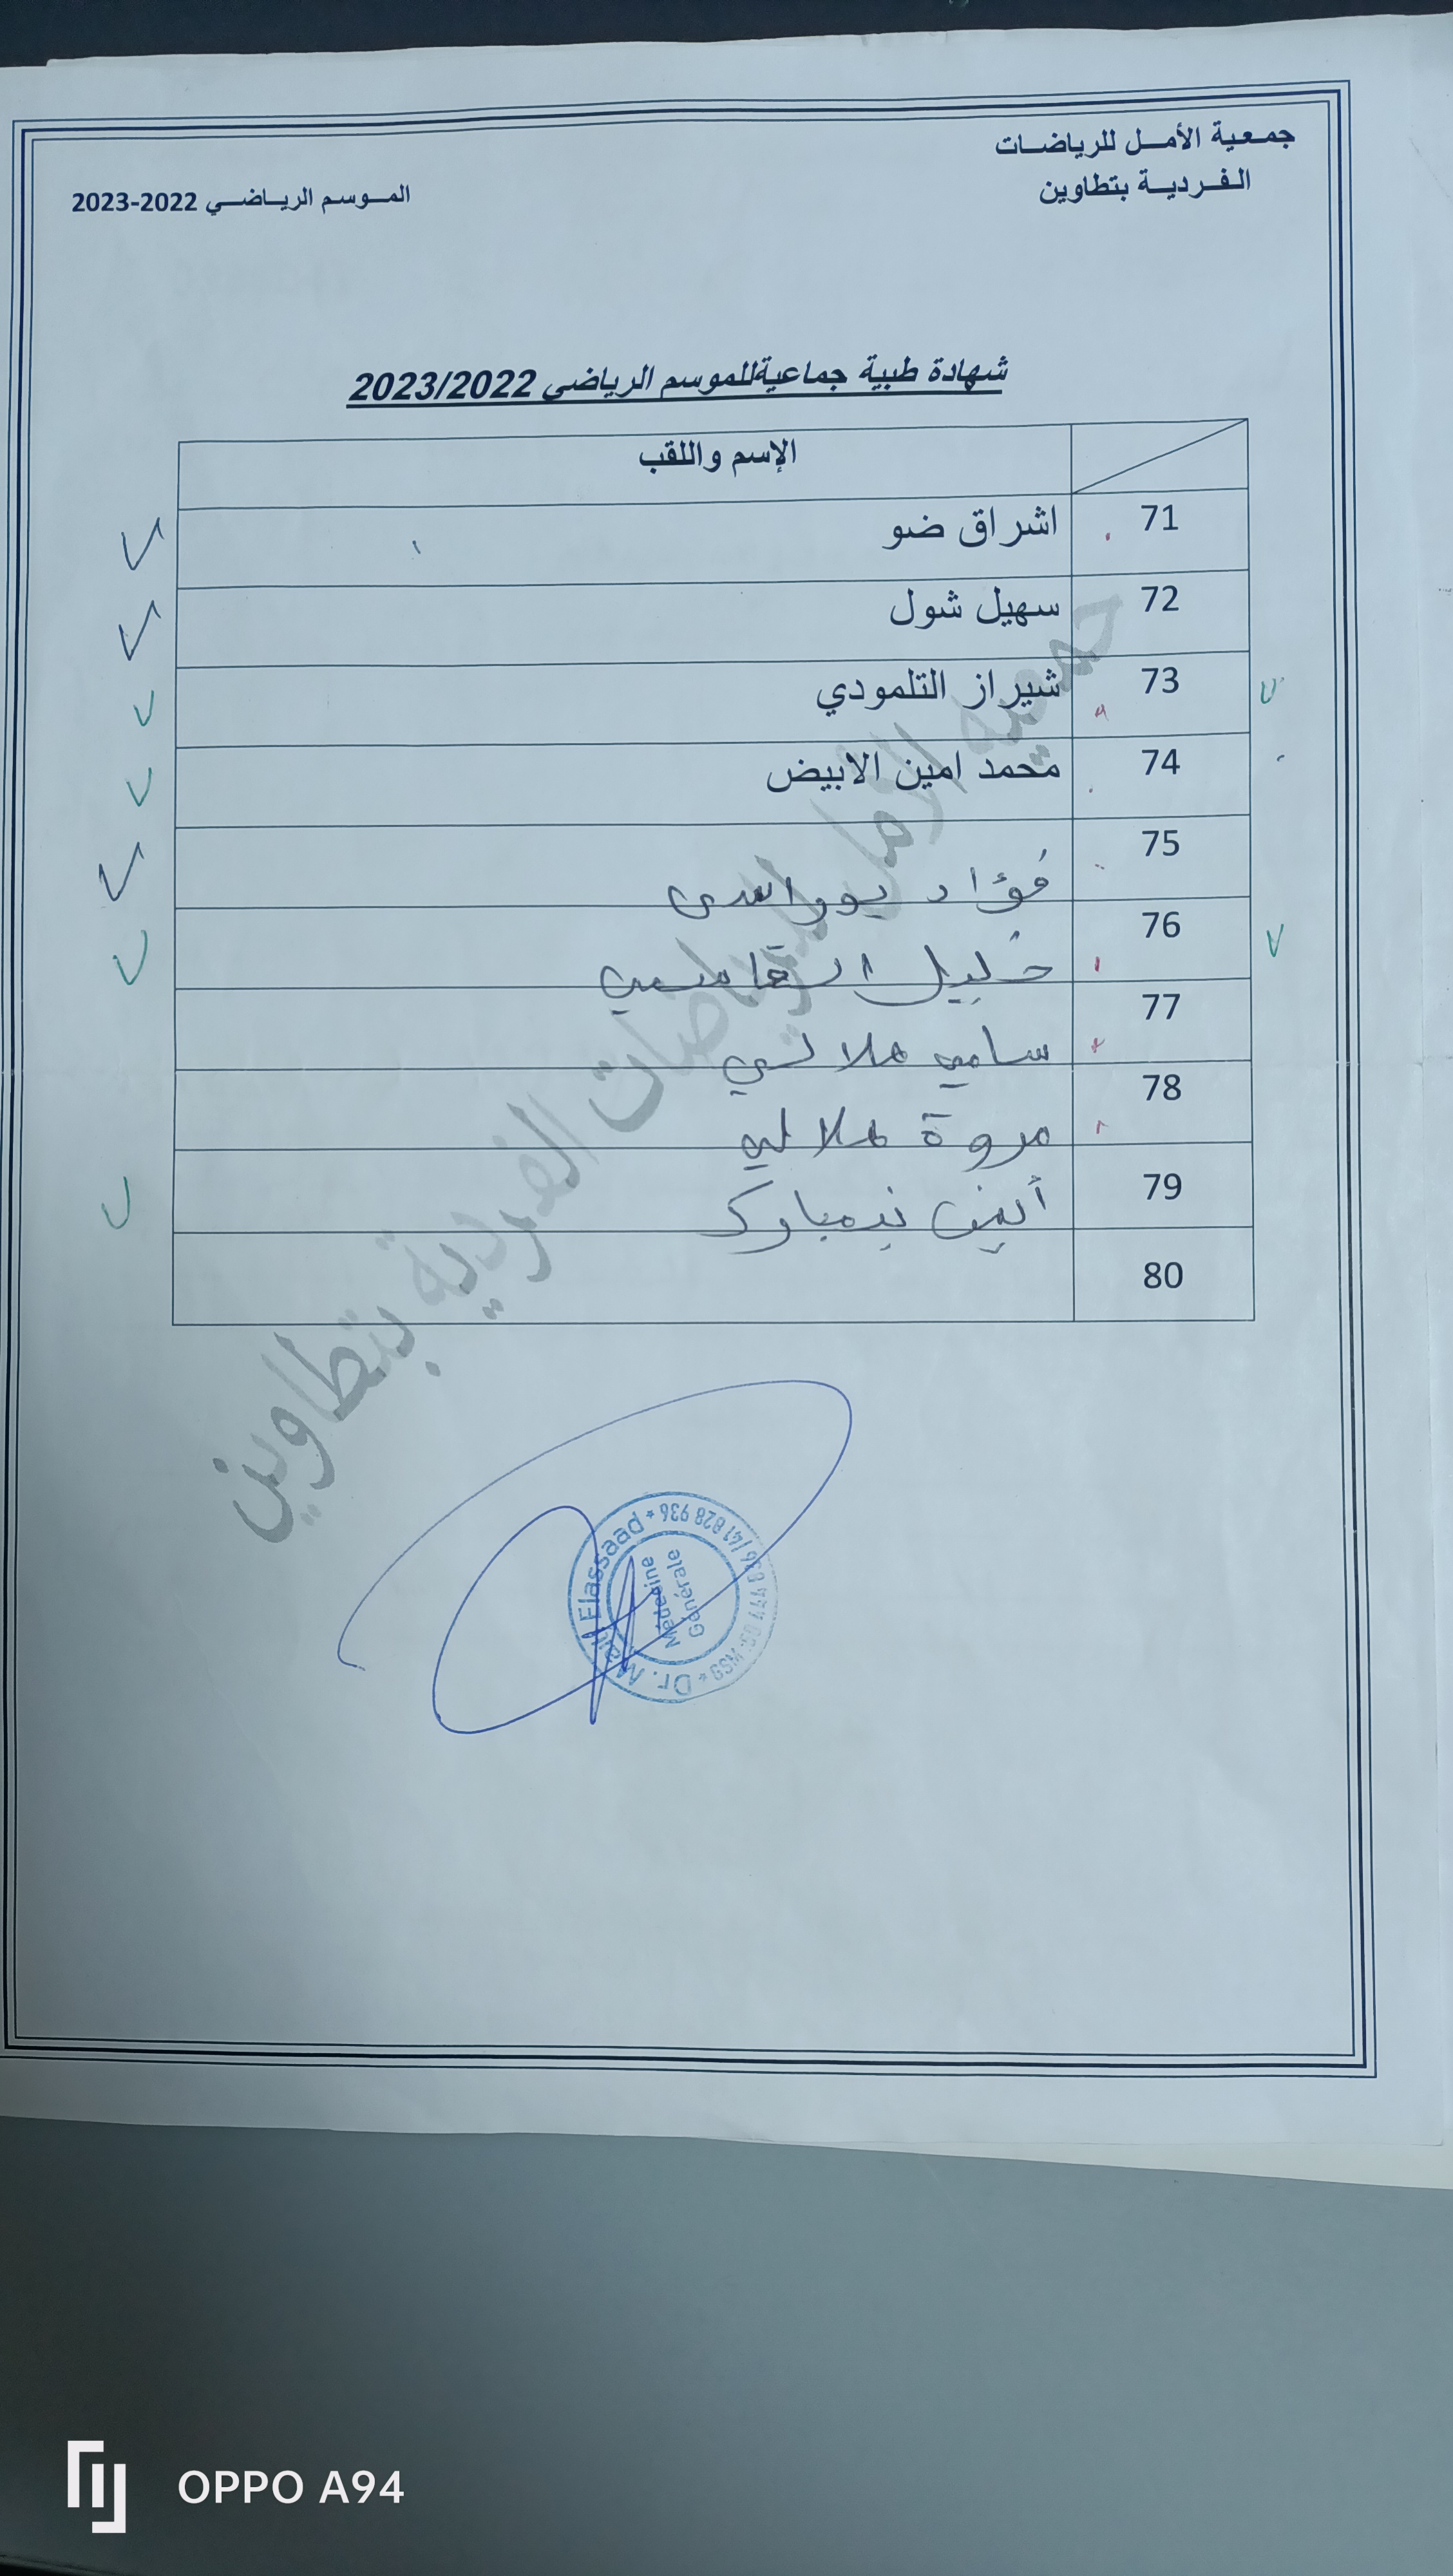 جمعية الأمل للرياضات
الفردية بتطاوين
الموسم الرياضي 2022-2023
شهادة طبية جماعيةللموسم الرياضي 2023/2022
الإسم واللقب
71 اشراق ضو
72 سهيل شول
73 شيراز التلمودي
74 محمد امين الابيض
75 فؤاد
76 خليل القاسمي
77 سامي هلالي
78 مروة هلالي
79
80
جمعية الأمل للرياضات الفردية بتطاوين
Elassaad
Médecine
Générale
OPPO A94